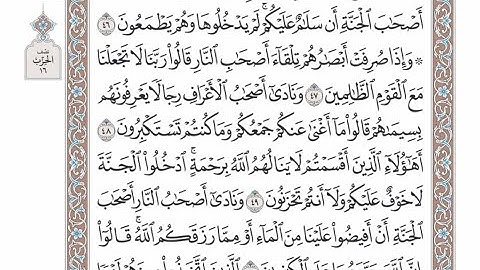 أَصْحَٰبَ ٱلْجَنَّةِ أَن سَلَٰمٌ عَلَيْكُمْ ۚ لَمْ يَدْخُلُوهَا وَهُمْ يَطْمَعُونَ ٤٦
۞ وَإِذَا صُرِفَتْ أَبْصَٰرُهُمْ تِلْقَآءَ أَصْحَٰبِ ٱلنَّارِ قَالُوا۟ رَبَّنَا لَا تَجْعَلْنَا
مَعَ ٱلْقَوْمِ ٱلظَّٰلِمِينَ ٤٧ وَنَادَىٰٓ أَصْحَٰبُ ٱلْأَعْرَافِ رِجَالًا يَعْرِفُونَهُم
بِسِيمَىٰهُمْ قَالُوا۟ مَآ أَغْنَىٰ عَنكُمْ جَمْعُكُمْ وَمَا كُنتُمْ تَسْتَكْبِرُونَ ٤٨
أَهَٰٓؤُلَآءِ ٱلَّذِينَ أَقْسَمْتُمْ لَا يَنَالُهُمُ ٱللَّهُ بِرَحْمَةٍ ۚ ٱدْخُلُوا۟ ٱلْجَنَّةَ
لَا خَوْفٌ عَلَيْكُمْ وَلَآ أَنتُمْ تَحْزَنُونَ ٤٩ وَنَادَىٰٓ أَصْحَٰبُ ٱلنَّارِ أَصْحَٰبَ
ٱلْجَنَّةِ أَنْ أَفِيضُوا۟ عَلَيْنَا مِنَ ٱلْمَآءِ أَوْ مِمَّا رَزَقَكُمُ ٱللَّهُ ۚ قَالُوٓا۟
نصف
الحزب
١٦